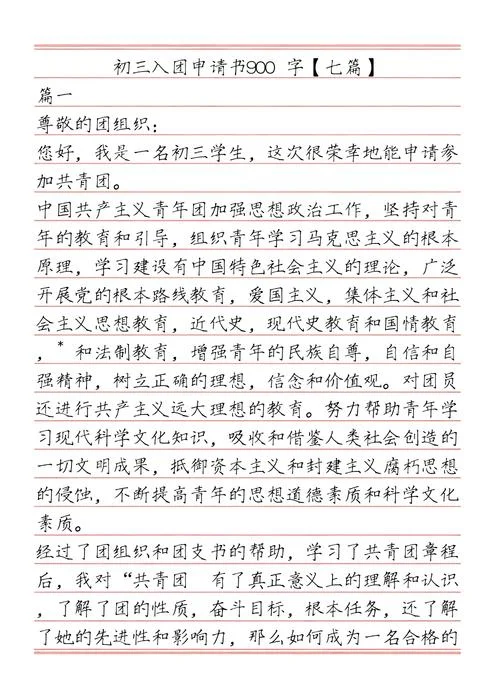 初三入团申请书900 字【七篇】
篇一
尊敬的团组织：
您好，我是一名初三学生，这次很荣幸地能申请参
加共青团。
中国共产主义青年团加强思想政治工作，坚持对青
年的教育和引导，组织青年学习马克思主义的根本
原理，学习建设有中国特色社会主义的理论，广泛
开展党的根本路线教育，爱国主义，集体主义和社
会主义思想教育，近代史，现代史教育和国情教育
，* 和法制教育，增强青年的民族自尊，自信和自
强精神，树立正确的理想，信念和价值观。对团员
还进行共产主义远大理想的教育。努力帮助青年学
习现代科学文化知识，吸收和借鉴人类社会创造的
一切文明成果，抵御资本主义和封建主义腐朽思想
的侵蚀，不断提高青年的思想道德素质和科学文化
素质。
经过了团组织和团支书的帮助，学习了共青团章程
后，我对“共青团　有了真正意义上的理解和认识
，了解了团的性质，奋斗目标，根本任务，还了解
了她的先进性和影响力，那么如何成为一名合格的